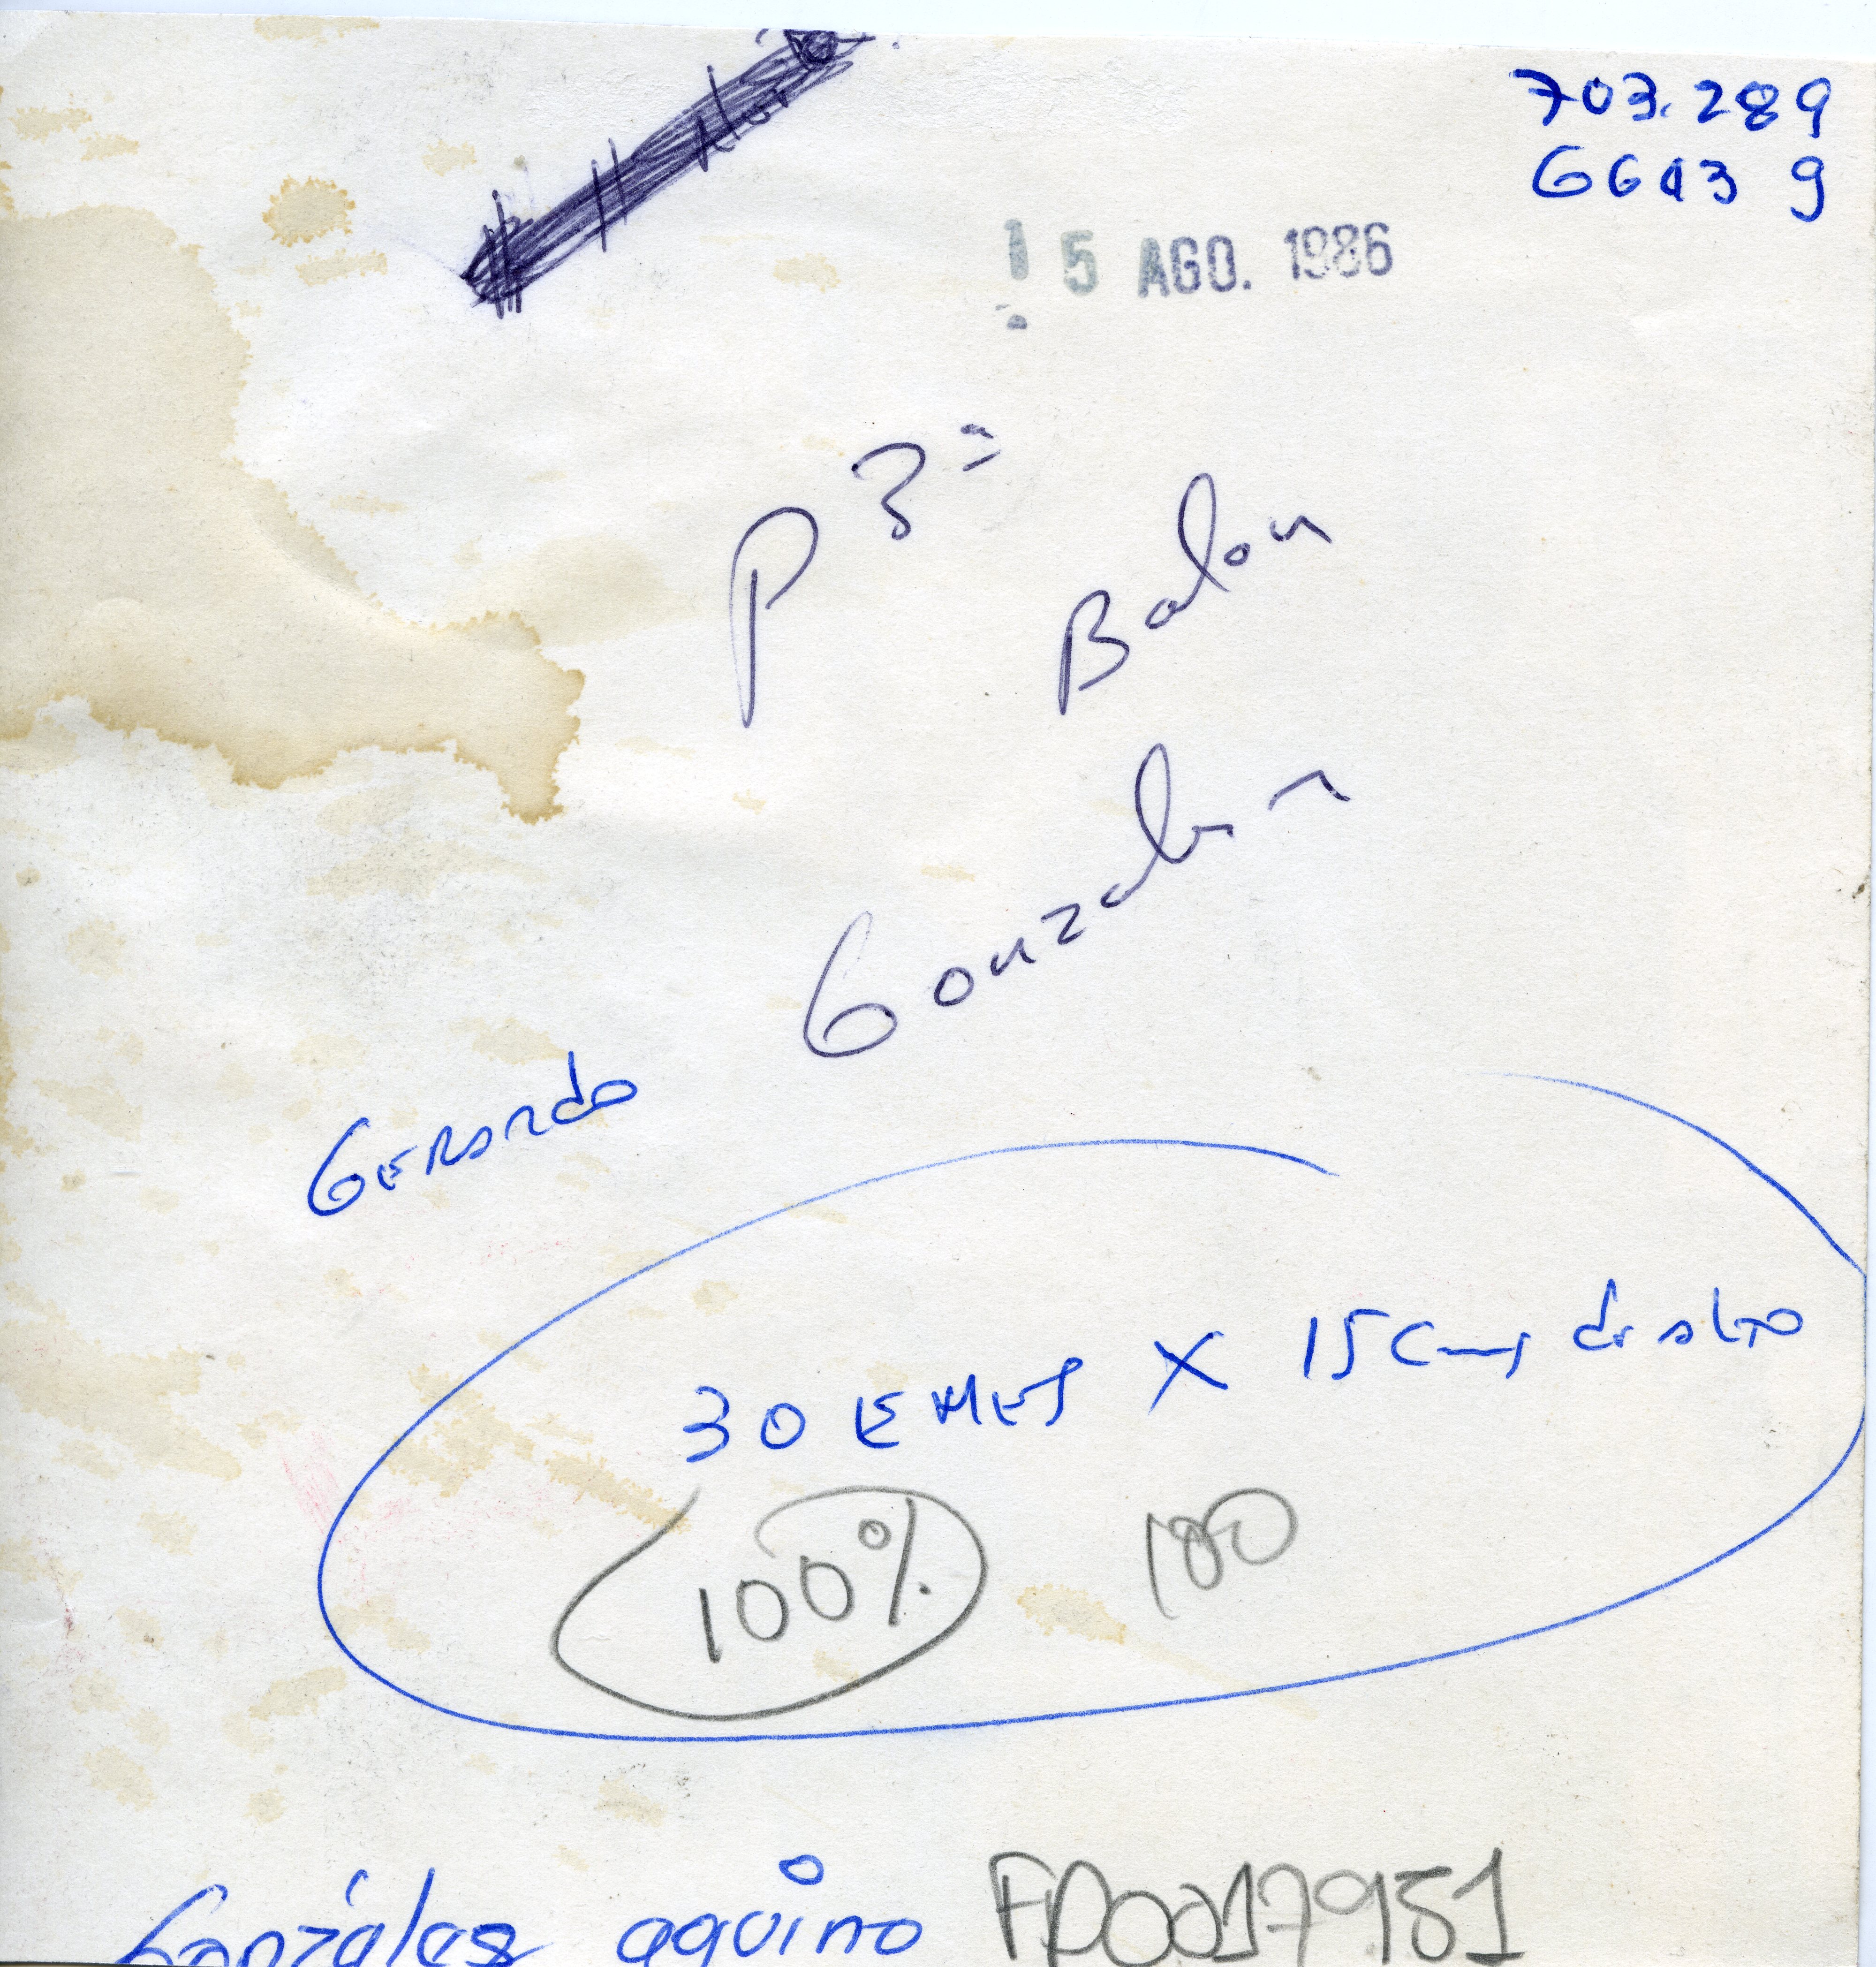 703.289
6613 9
15 AGO. 1986
P 3=
Balon
Gonzalez
Gerardo
30 EMES X 15 Cms de alto
100% 180
González aquino FP0017951